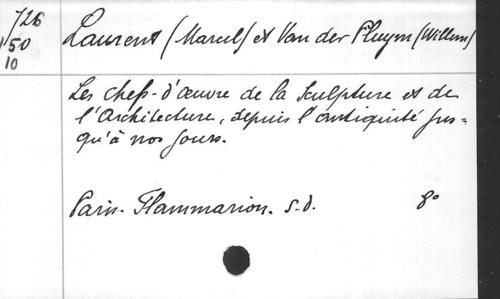 726
150
10
Laurent (Marcel) et Van der Pluym (Willem)
Les chefs-d'œuvre de la Sculpture et de
l'Architecture, depuis l'antiquité jus=
qu'à nos jours.
Paris. Flammarion. s.d. 8°